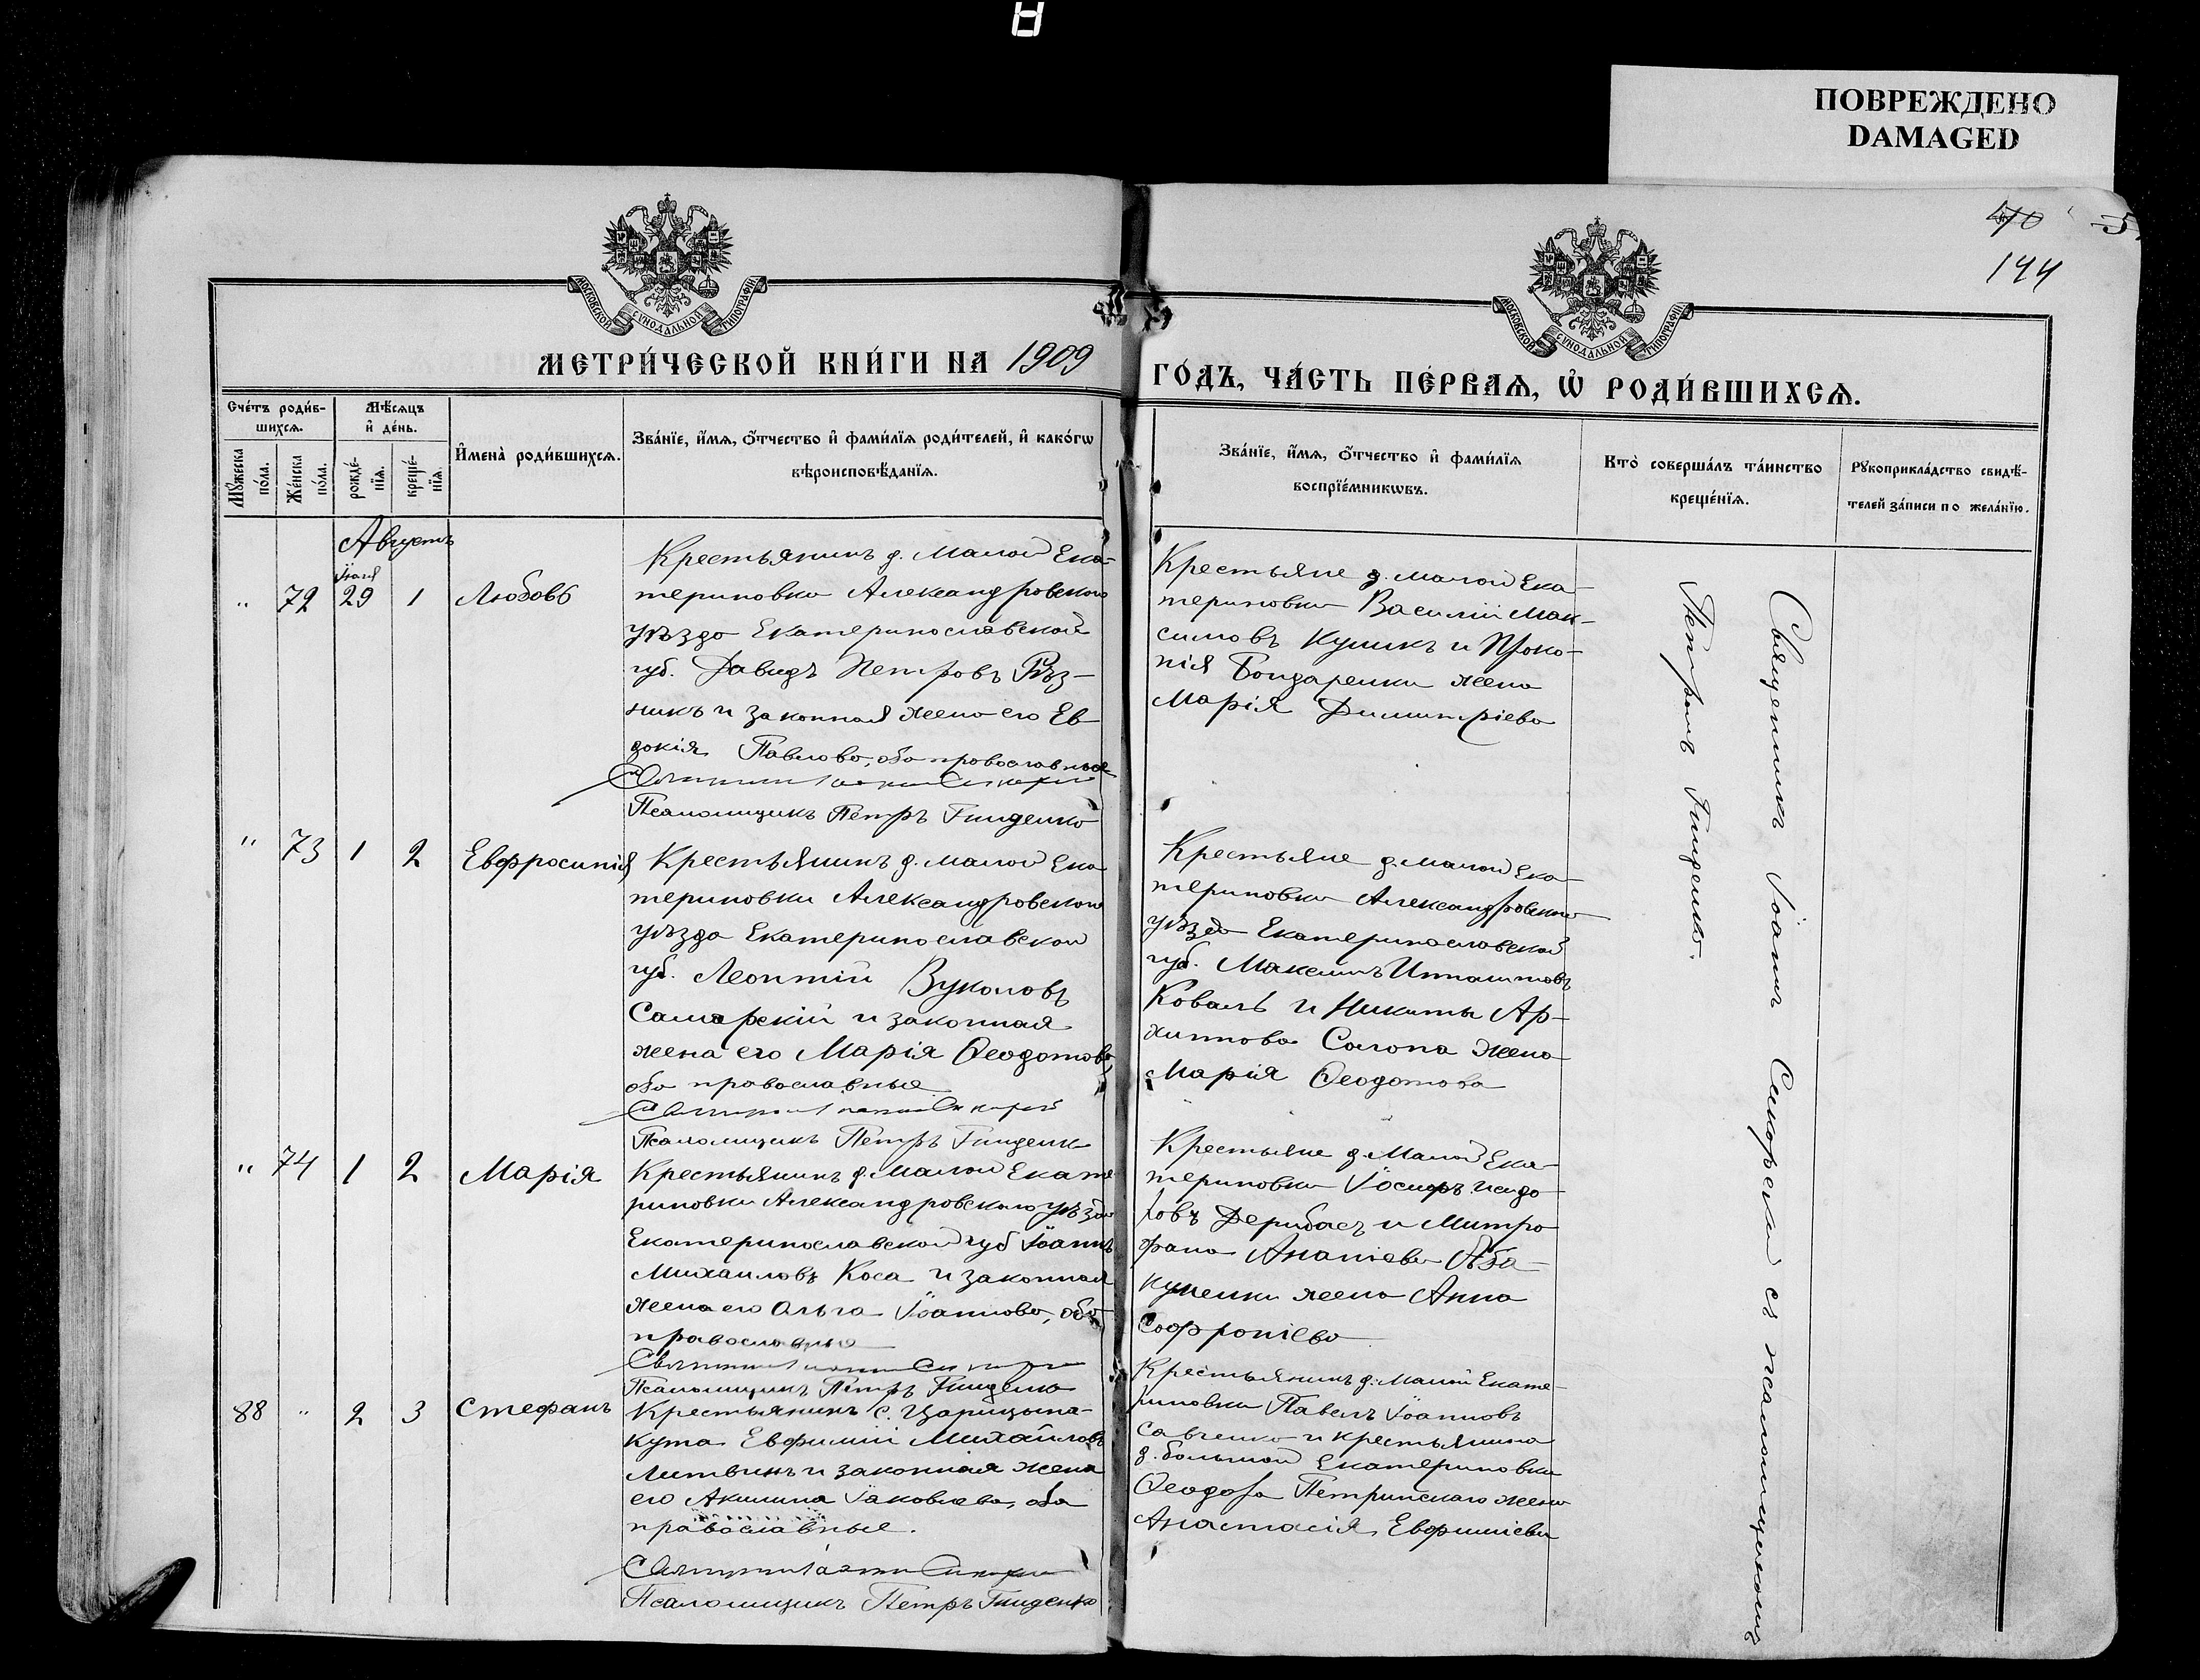 ПОВРЕЖДЕНО
DAMAGED
144
МОСКОВСКОЙ СѴНОДАЛЬНОЙ ТИПОГРАФІИ
МОСКОВСКОЙ СѴНОДАЛЬНОЙ ТИПОГРАФІИ
МЕТРИ́ЧЕСКОЙ КНИ́ГИ НА 1909
ГО́ДЪ, ЧА́СТЬ ПЕ́РВАѦ, Ѡ҆ РОДИ́ВШИХСѦ.
Сче́тъ роди́в-
шихсѧ.
Мꙋ́жеска по́ла.
Же́нска по́ла.
Мѣ́сѧцъ
и҆ де́нь.
рожде́-
нїѧ.
креще́-
нїѧ.
И҆мена̀ роди́вшихсѧ.
Зва́нїе, и҆́мѧ, ѻ҆́тчество и҆ фами́лїѧ роди́телей, и҆ како́гѡ
вѣроисповѣ́данїѧ.
Зва́нїе, и҆́мѧ, ѻ҆́тчество и҆ фами́лїѧ
воспрїе́мникѡвъ.
Кто̀ соверша́лъ та́инство
креще́нїѧ.
Рꙋкоприкла́дство свидѣ́-
телей за́писи по жела́нїю.
Августъ
" 72 Іюля 29 1 Любовь
Крестьянинъ д. Малой Ека-
териновки Александровскаго
уѣзда Екатеринославской
губ. Давидъ Петровъ Рѣз-
никъ и законная жена его Ев-
докія Павлова, оба православные
Священникъ Іоаннъ Сикорскій
Псаломщикъ Петръ Гниденко
Крестьяне д. Малой Ека-
териновки Василій Мак-
симовъ Кушикъ и Проко-
пія Бондаренки жена
Марія Димитріева
Священникъ Іоаннъ Сикорскій съ псаломщикомъ
Петромъ Гниденко.
" 73 1 2 Евфросинія
Крестьянинъ д. Малой Ека
териновки Александровскаго
уѣзда Екатеринославской
губ. Леонтій Вуколовъ
Самарскій и законная
жена его Марія Ѳеодотова,
оба православные
Священникъ Іоаннъ Сикорскій
Псаломщикъ Петръ Гниденк
Крестьяне д. Малой Ека-
териновки Александровскаго
уѣзда Екатеринославской
губ. Максимъ Ипполитовъ
Коваль и Никиты Ар-
хиппова Салопа жена
Марія Ѳеодотова
" 74 1 2 Марія
Крестьянинъ д. Малой Екате
риновки Александровскаго уѣзда
Екатеринославской губ Іоаннъ
Михаиловъ Коса и законная
жена его Ольга Іоаннова, оба
православные
Священникъ Іоаннъ Сикорскій
Псаломщикъ Петръ Гниденко
Крестьяне д. Малой Ека-
териновки Іосифъ Исидо
ровъ Дерибасъ и Митро
фана Ананіева Аба-
куменки жена Анна
Софроніева
88 " 2 3 Стефанъ
Крестьянинъ с. Царицына-
Кута Евфимій Михаиловъ
Литвинъ и законная жена
его Акилина Іаковлева, оба
православные.
Священникъ Іоаннъ Сикорскій
Псаломщикъ Петръ Гниденко
Крестьянинъ д. Малой Екате-
риновки Павелъ Іоанновъ
Савченко и крестьянина
д. Большой Екатериновки
Ѳеодора Петринскаго жена
Анастасія Евфиміева